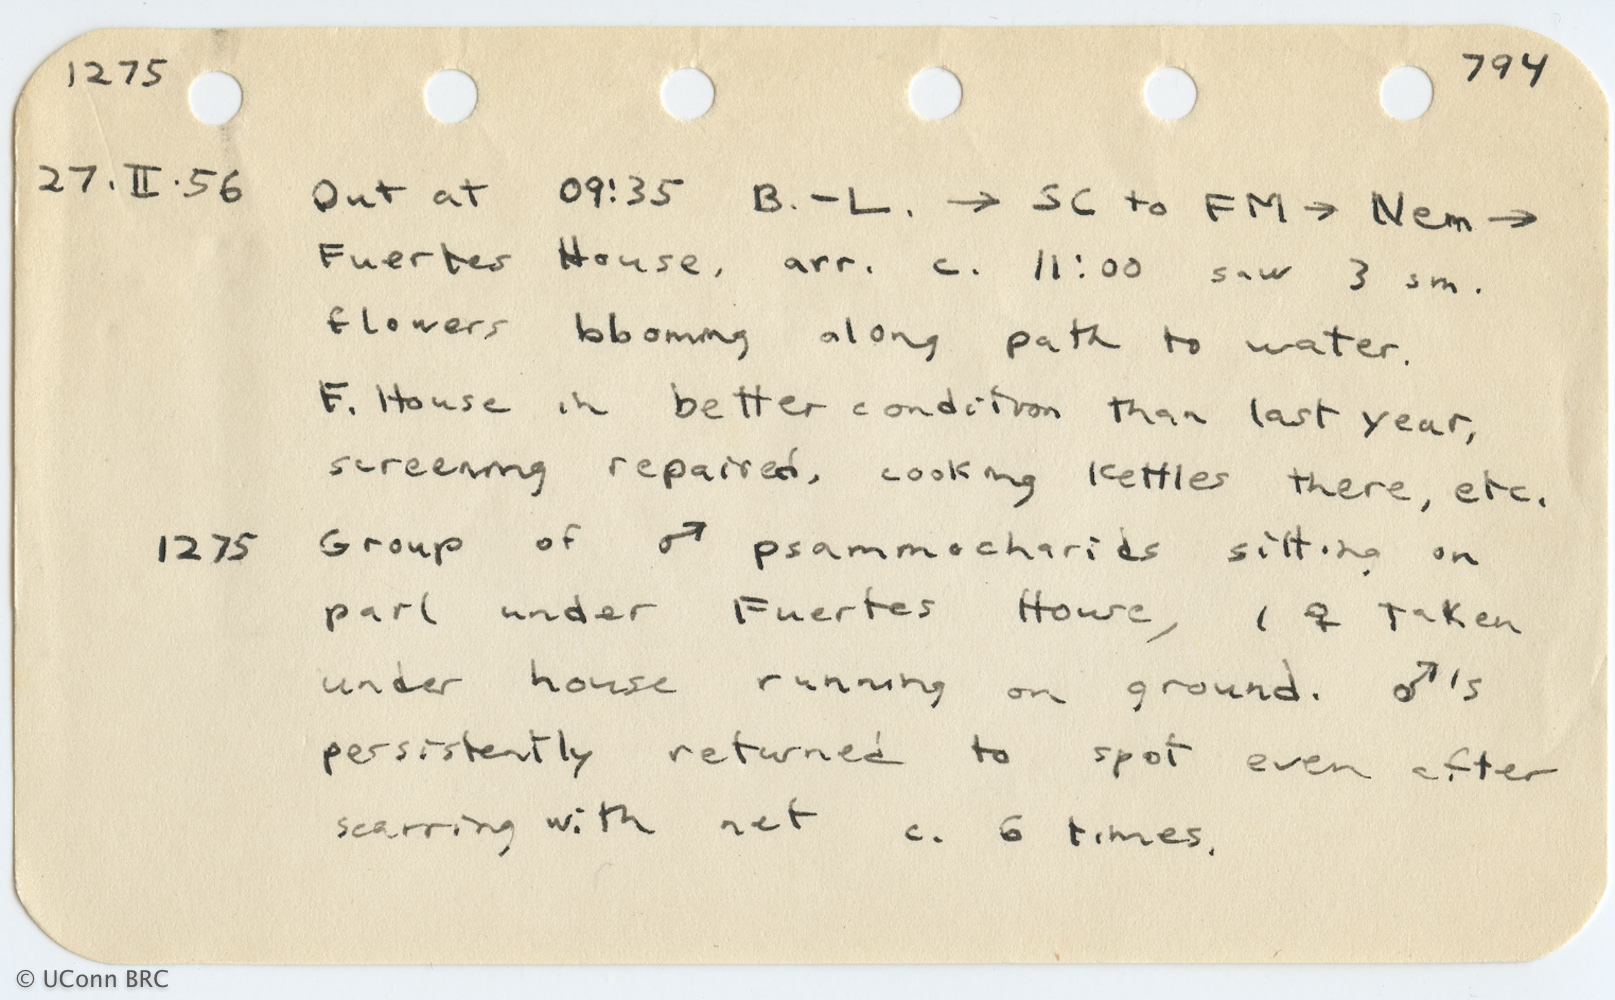 1275 794
27.II.56 Out at 09:35 B.-L. → SC to FM → Nem →
Fuertes House, arr. c. 11:00 saw 3 sm.
flowers bboming along path to water.
F. House in better condition than last year,
screening repaired, cooking kettles there, etc.
1275 Group of ♂ psammocharids sitting on
parl under Fuertes House, 1 ♀ taken
under house running on ground. ♂'s
persistently returned to spot even after
scarring with net c. 6 times.
© UConn BRC